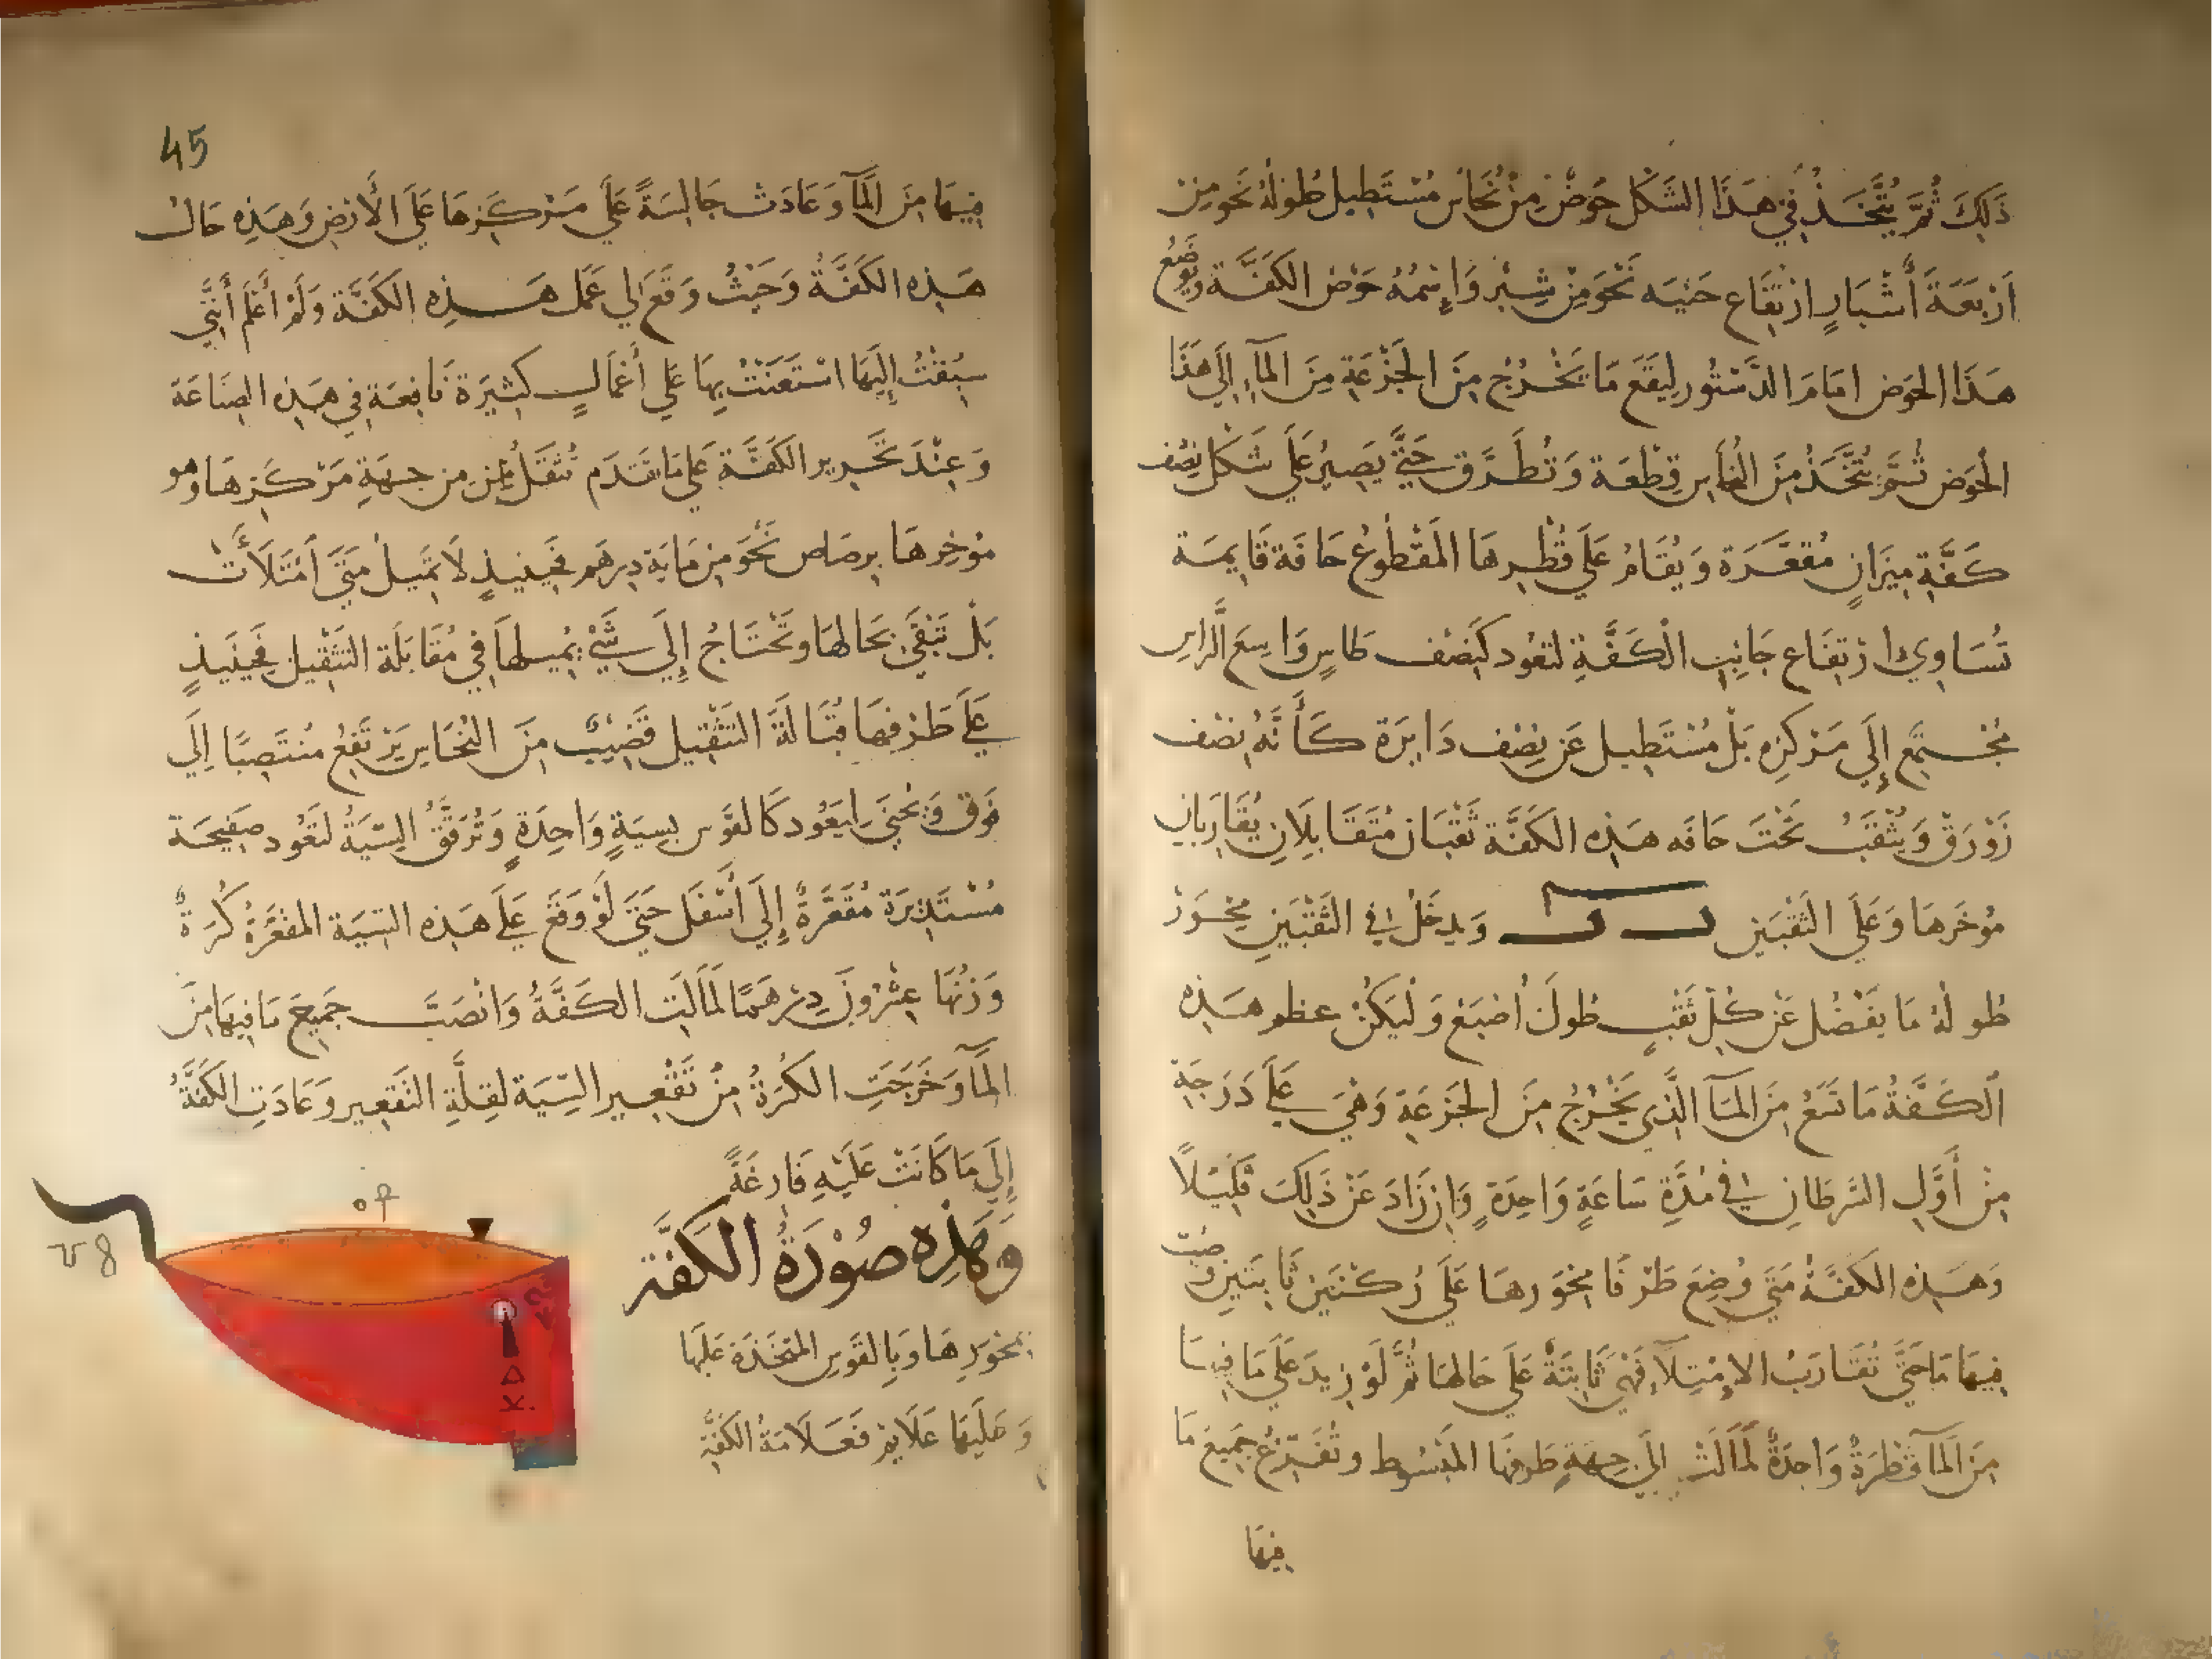 ذَلِكَ ثُمَّ يُتَّخَذُ فِي هَذَا الشَكْل حَوْضٌ مِنْ نُحَاسٍ مُسْتَطِيل طُولُهُ نَحْو مِنْ
اَرْبَعَةَ أَشْبَارٍ ارْتِفَاع حَنْيَه نَحْوَ مِنْ شِبْرٍ وَاِسْمُهُ حَوْض الكَفَّة وَيُوضَعُ
هَذَا الحَوَض امَامَ الدَّسْتُور لِيَقَعَ مَا يَخْرُج مِنَ الجَزْعَةِ مِنَ المآءِ إِلَى هَذَا
الْحَوَض ثُمَّ يُتَّخَذُ مِنَ النُحَاسِ قِطْعَة وَتُطَرَّق حَتَّى يَصِيرُ عَلَى شَكْل نِصْف
كَفَّةِ مِيزَانٍ مُقَعَّرَة وَيُقَامُ عَلَى قُطْرِهَا المَقْطُوعُ حَافَة قَايِمَة
تُسَاوِي ارْتِفَاع جَانِبِ الْكَفَّةِ لتَعُود كَنِصْف طَاسٍ وَاسِعَ الرَّاسِ
مُجْتَمِع إِلَى مَرْكَزِهِ بَلْ مُسْتَطِيل عَنْ نِصْف دَايِرَة كَأَنَّهُ نِصْف
زَوْرَق وَيُثْقَبُ تَحْتَ حَافَه هَذِهِ الكَفَّة ثَقْبَان مُتَقَابِلَانِ يُقَارِبَانِ
مُؤخرَهَا وَعَلَى الثَقْبَيْنِ وَيدخَلُ فِي الثَقْبَيْنِ مِحْوَرْ
طُولهُ مَا يَفْضُل عَنْ كُلِّ ثَقْبٍ طُولَ أُصْبَعْ وَلْيَكُنْ عظم هَذِهِ
الْكَفَّةُ مَا تَسَعُ مِنَ المَآ الَّذِي يَخْرُجُ مِنَ الجَزعَةِ وَهْيَ عَلَى دَرَجَةِ
مِنْ أَوَّلِ السَّرطَانِ فِي مُدَّةِ سَاعَةٍ وَاحِدَةٍ وَإن زَادَ عَنْ ذَلِكَ قَلَيْلاً
وَهَذِهِ الكَفَّةُ مَتَى وُضِعَ طَرْفَا مِحْوَرهَا عَلَى رُكْنَيْنِ ثَابِتَيْنِ وَصُبَّ
فِيهَا مَا حَتَّى تُقَارِبُ الاِمْتِلآءِ فَهْيَ ثَابِتَةٌ عَلَى حَالهَا ثُمَّ لَوْ زِيدَ عَلَى مَا فِيهَا
مِنَ المَآ قَطْرَةٌ وَاحِدَةٌ لَمَالَتْ إِلَى جِهَةِ طَرفهَا المَبْسُوط وتُفَرّغُ جَمِيعَ مَا
فِيهَا
45
فِيهَا مِنَ المآ وَعَادَت جَالِسَةً عَلَى مَرْكَزهَا عَلَى الأَرْضِ وَهَذِهِ حَالُ
هَذِهِ الكَفَّةُ وَحَيْثُ وَقَعَ لِي عَمَل هَذِهِ الكَفَّة وَلَمْ أَعْلَم أَنَّنِي
سُبِقْتُ إِلَيهَا اسْتَعَنْتُ بِهَا عَلَى أَعْمَالٍ كَثِيرَة نَافِعَة فِي هَذِهِ الصِنَاعَة
وَعِنْدَ تَحْرير الكَفَّة عَلَى مَا تَقَدَم تُثَقَّلُ مِنْ جِهَةِ مَرْكَزهَا وهو
مُؤخِرهَا بِرصَاص نَحْوَ مِنْ مَايَة دِرهَم فَحِينَيذٍ لَا تَمِيلُ مَتَى اَمْتَلَأَتْ
بَلْ تَبْقَى بحَالهَا وتَحْتَاجُ إِلَى شَيْ يُمِيلهَا فِي مُقَابَلَة التَثْقِيل فَحِينَيذٍ
عَلَى طَرْفِهَا قُبَالَةَ التَثْقِيل قَضِيبٌ مِنَ النُحَاسِ يَرْتَفِعُ مُنتَصِبًا اِلَى
فَوق وَيُحْنَى ليَعُود كَالقوَسِ بِسِيَةٍ وَاحِدَةٍ وَتُرَقَّقُ السِّيَةُ لتَعُود صَفِيحَة
مُسْتَدِيرَة مُقَعَّرَةٌ إِلَى أَسْفَل حَتَى لَوْ وَقَعَ عَلَى هَذِهِ السِّيَة المقَعَّرَةُ كُرَةٌ
وَزنُهَا عِشْرُونَ دِرْهَمًا لَمَالَتِ الكَفَّةُ وَانْصَبَّ جَمِيعَ مَا فِيهَا مِنَ
المَآ وَخَرَجَتِ الكُرَةُ مِنْ تَقْعِيرِ السِّيَة لقِلَّةِ التَقعِيرِ وَعَادَتِ الكَفَّةُ
إِلَى مَا كَانَتْ عَلَيْهِ فَارِغَةً
وَهَذِهِ صُوْرَةُ الكَفَّة
بمحوَرِهَا وَبِالقَوسِ المتّخَذَة عَلَيهَا
وَعَلَيهَا عَلَايِم فَعَلَامَةُ الكَفَّةِ